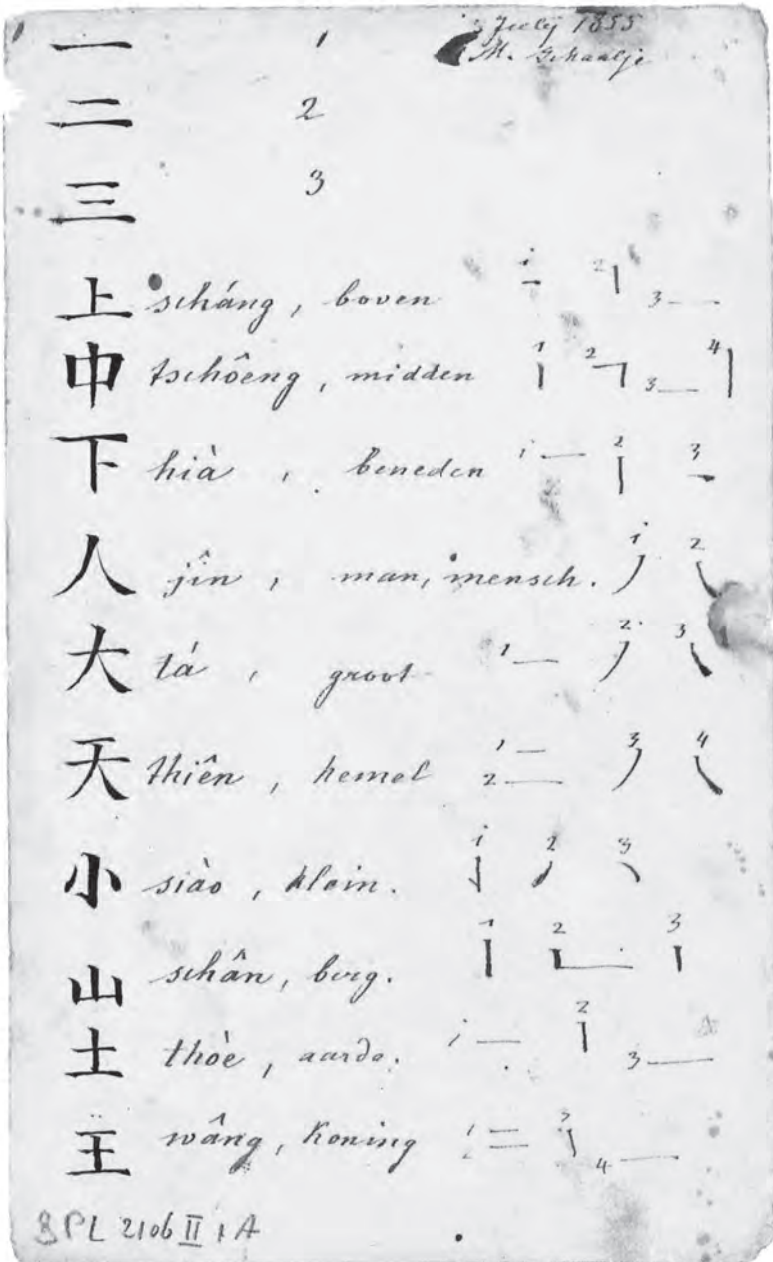 July 1855
M. Schaalje
一 1
二 2
三 3
上 scháng, boven 1 2 3
中 tschôeng, midden 1 2 3 4
下 hià, beneden 1 2 3
人 jîn, man, mensch. 1 2
大 tá, groot 1 2 3
天 thiên, hemel 1 2 3 4
小 siào, klein. 1 2 3
山 schân, berg. 1 2 3
土 thòe, aarde. 1 2 3
王 wâng, Koning 1 2 3 4
BPL 2106 II 1 A